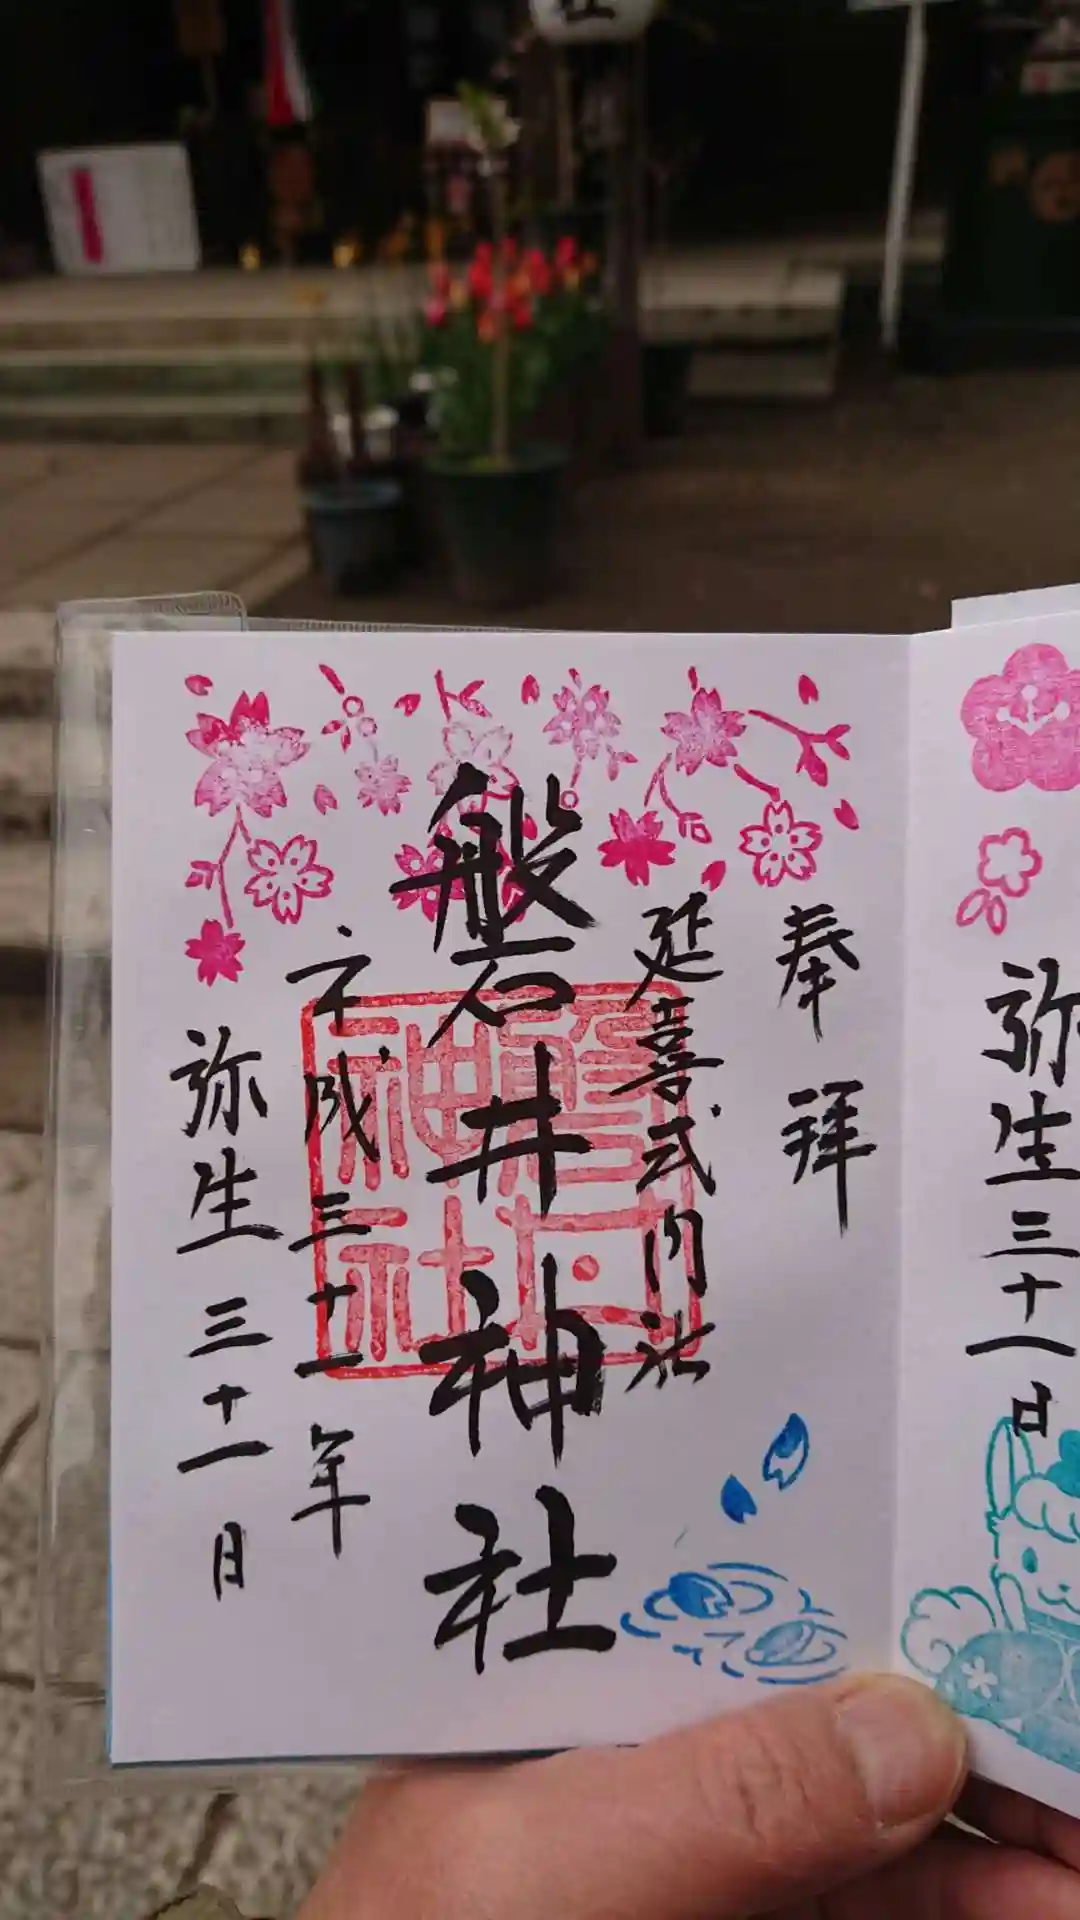 奉拝
延喜式内社
磐井神社
平成三十一年
弥生三十一日
弥生三十一日
磐井神社
社